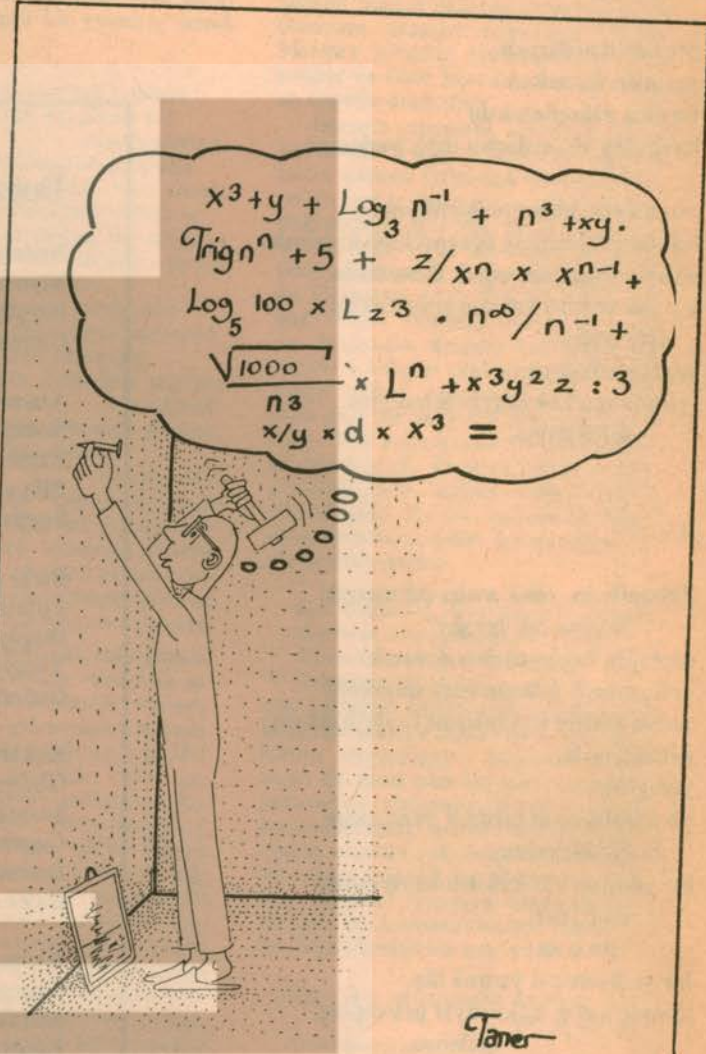 x³+y + Log₃ n⁻¹ + n³ +xy.
Trig nⁿ + 5 + z/xn x xⁿ⁻¹+
Log₅ 100 x L z³ . n∞/n⁻¹ +
√1000 / n3 x Lⁿ +x³y²z : 3
x/y x d x x³ =
Taner